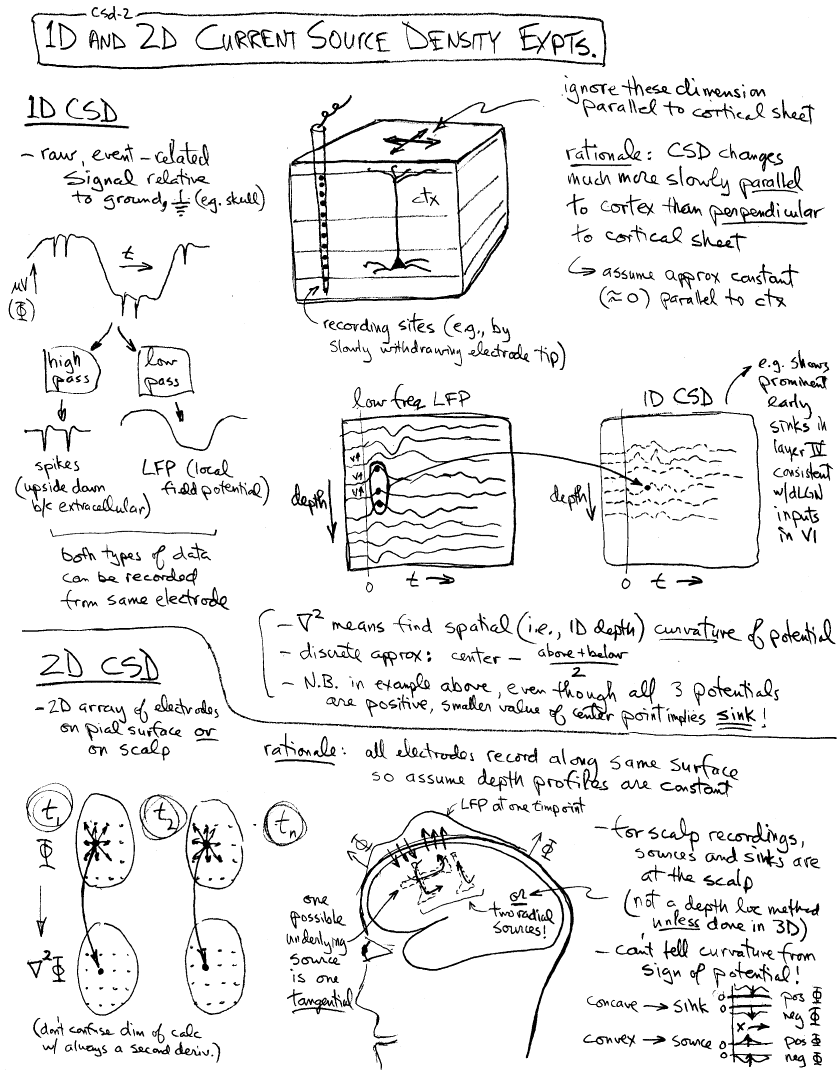 csd-2
1D AND 2D CURRENT SOURCE DENSITY EXPTS.
1D CSD
– raw, event-related
signal relative
to ground, ⏚ (e.g. skull)
t →
μV ↑
(Φ)
high
pass
low
pass
spikes
(upside down
b/c extracellular)
LFP (local
field potential)
both types of data
can be recorded
from same electrode
ctx
ignore these dimension
parallel to cortical sheet
rationale: CSD changes
much more slowly parallel
to cortex than perpendicular
to cortical sheet
↳ assume approx constant
(≈0) parallel to ctx
recording sites (e.g., by
slowly withdrawing electrode tip)
low freq LFP
V↑
V↑
V↑
depth
0 t →
1D CSD
depth
0 t →
e.g. shows
prominent
early
sinks in
layer IV
consistent
w/dLGN
inputs
in V1
– ∇² means find spatial (i.e., 1D depth) curvature of potential
– discrete approx: center – above + below
2
– N.B. in example above, even though all 3 potentials
are positive, smaller value of center point implies sink!
2D CSD
– 2D array of electrodes
on pial surface or
on scalp
rationale: all electrodes record along same surface
so assume depth profiles are constant
t₁ t₂ tₙ
Φ
∇²Φ
(don't confuse dim of calc
w/ always a second deriv.)
LFP at one timpoint
Φ
Φ
one
possible
underlying
source
is one
tangential
or
two radial
sources!
– for scalp recordings,
sources and sinks are
at the scalp
(not a depth loc method
unless done in 3D)
– can't tell curvature from
sign of potential!
concave → sink
convex → source
0
0
x →
0
0
pos Φ
neg Φ
pos Φ
neg Φ